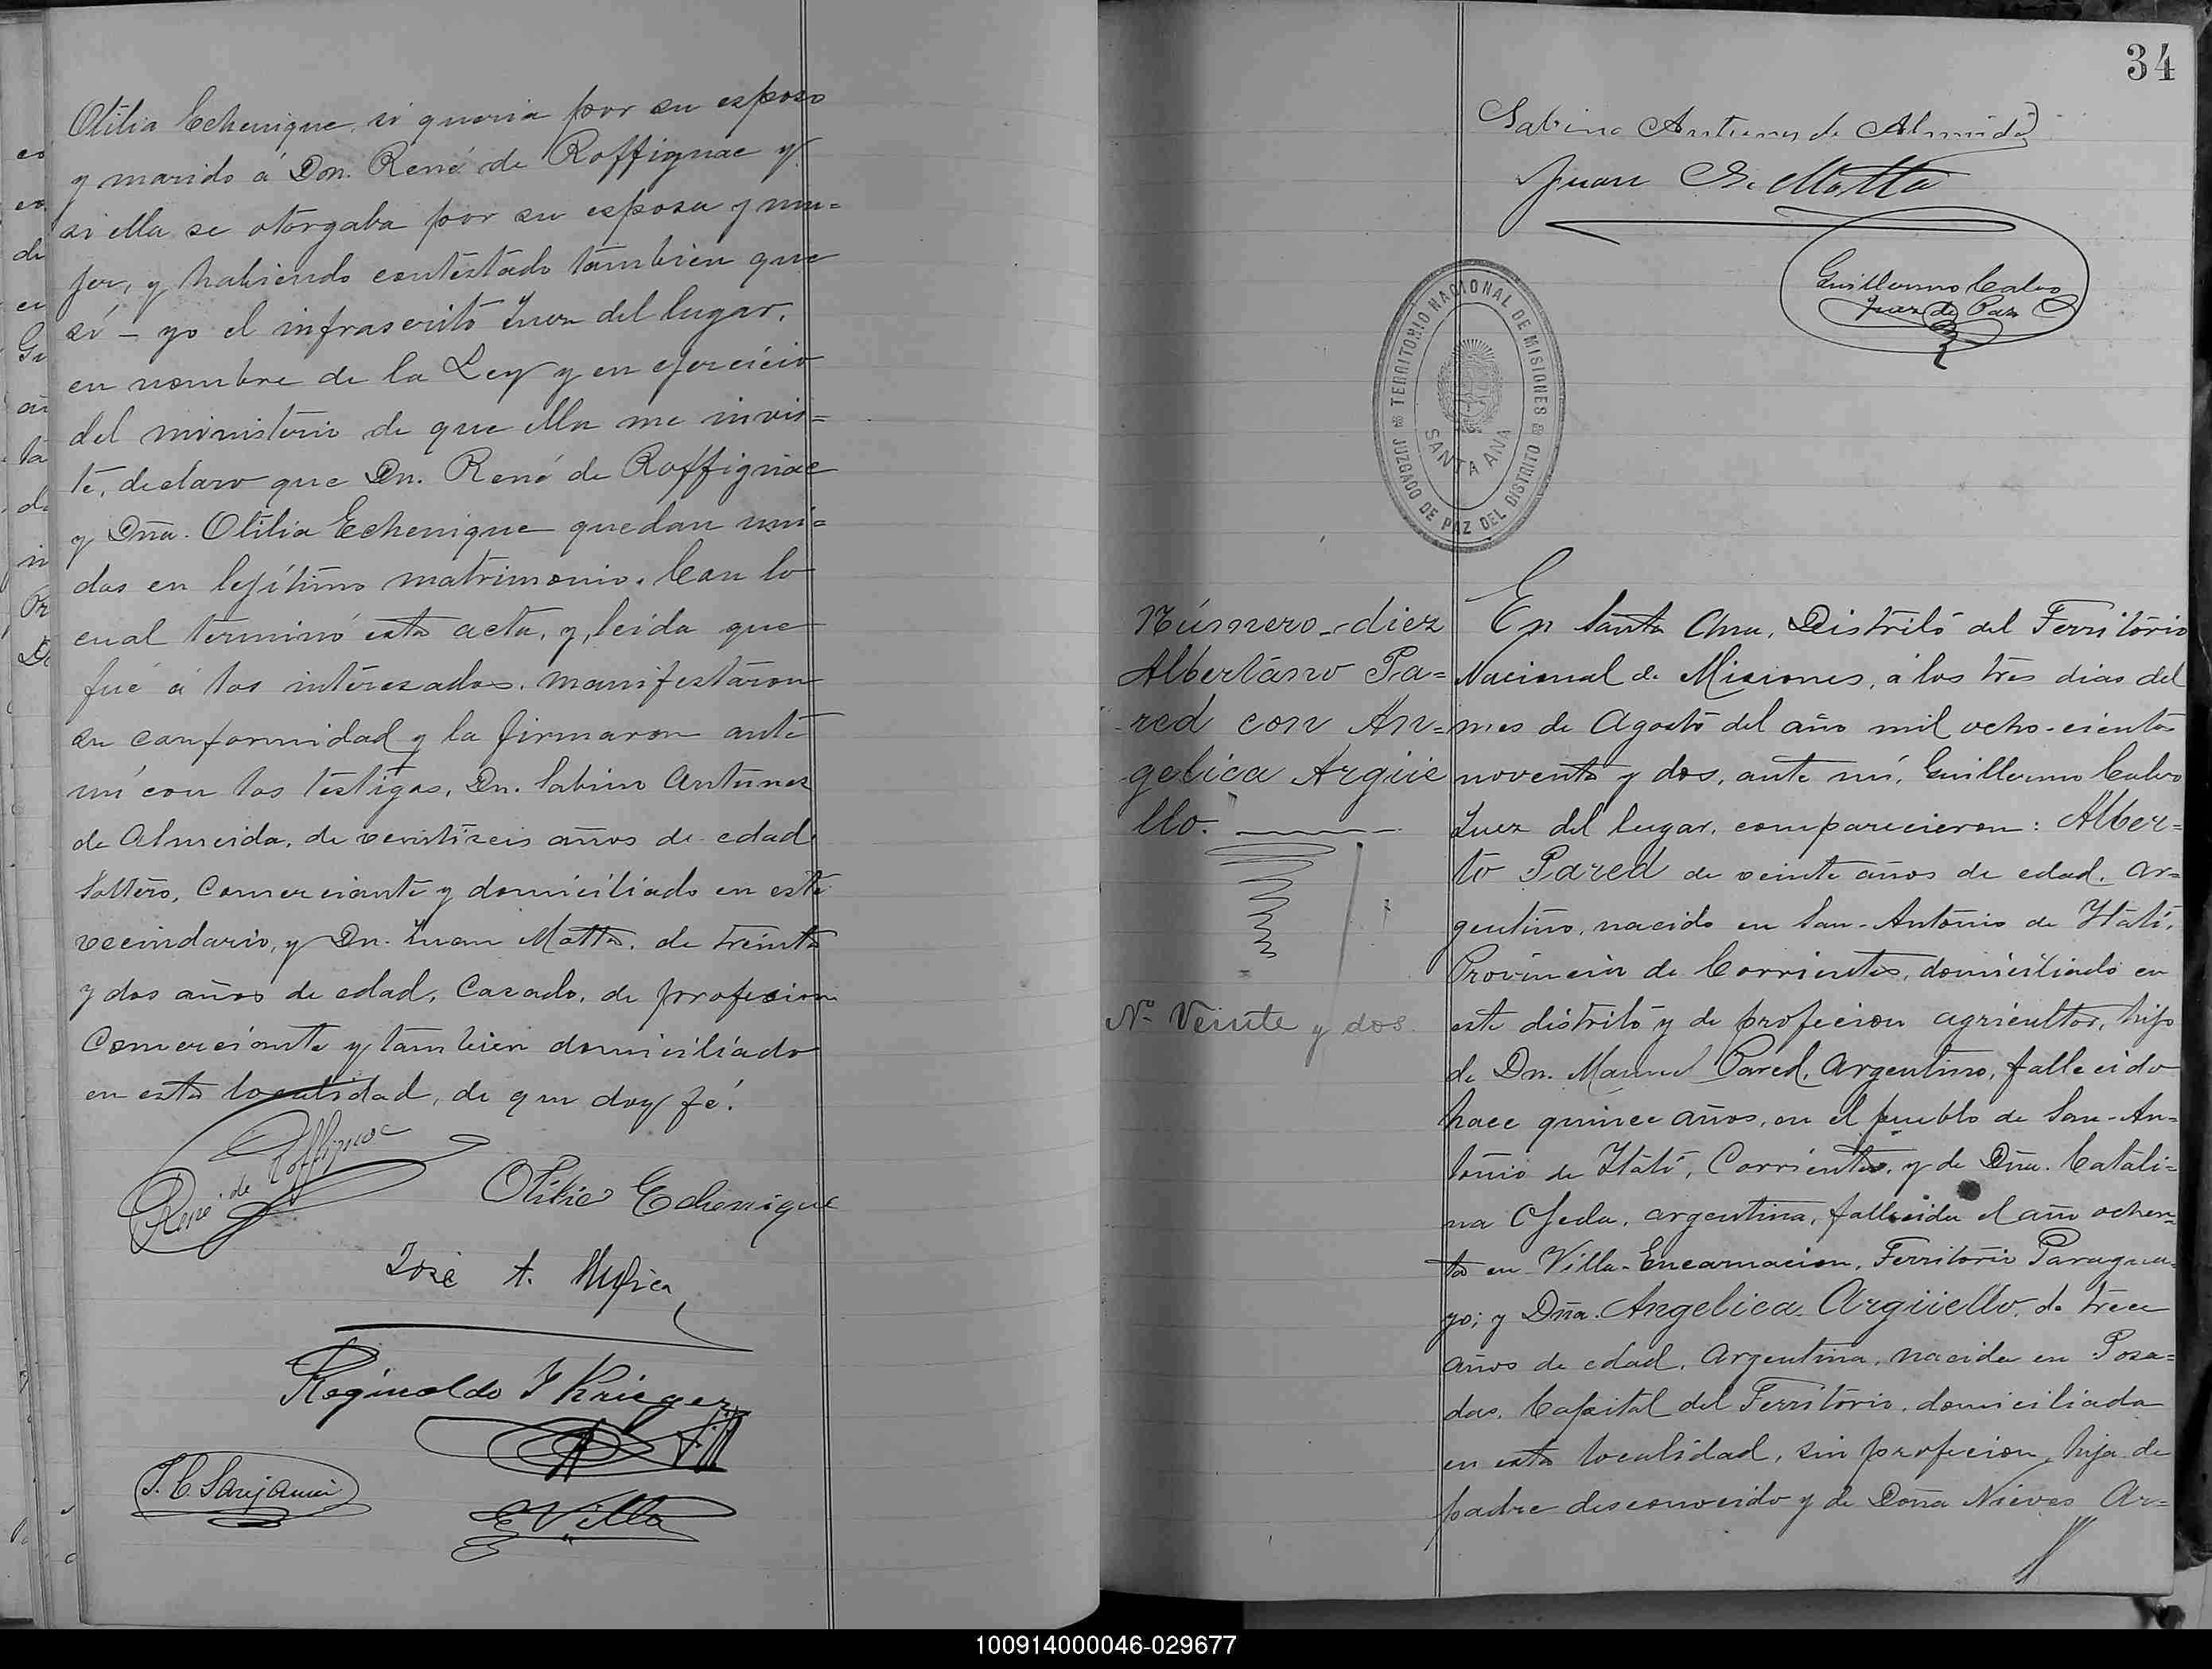 Otilia Echenique, si queria por su esposo
y marido á Don. René de Roffignac y
si ella se otorgaba por su esposa y mu=
jer, y habiendo contestado tambien que
sí – yo el infrascrito Juez del lugar,
en nombre de la Ley y en ejercicio
del ministerio de que ella me invis=
te, declaro que Dn. René de Roffignac
y Dña. Otilia Echenique quedan uni=
dos en lejítimo matrimonio. Con lo
cual terminó esta acta, y, leida que
fué á los interesados. manifestaron
su conformidad y la firmaron ante
mí con los testigos, Dn. Sabino Antunez
de Almeida, de veintiseis años de edad,
Soltero, Comerciante y domiciliado en este
vecindario, y Dn. Juan Motta, de treinta
y dos años de edad, Casado, de profesion
Comerciante y tambien domiciliado
en esta localidad, de que doy fé.
René de Roffignac
Otilia Echenique
José A. Mujica
Reginaldo J Krieger
E Villa
34
Sabino Antunez de Almeida
Juan S. Motta
Guillermo Calvo
Juez de Paz
TERRITORIO NACIONAL DE MISIONES
JUZGADO DE PAZ DEL DISTRITO
SANTA ANA
Número diez
Albertano Pa=
red con An=
gelica Argüe
llo.
Nº Veinte y dos
En Santa Ana, Distrito del Territorio
Nacional de Misiones, á los tres dias del
mes de Agosto del año mil ocho-cientos
noventa y dos, ante mí, Guillermo Calvo
Juez del lugar, comparecieron: Alber=
to Pared de veinte años de edad, ar=
gentino, nacido en San-Antonio de Itatí,
Provincia de Corrientes, domiciliado en
este distrito y de profecion agricultor, hijo
de Dn. Manuel Pared, Argentino, fallecido
hace quince años, en el pueblo de San-An=
tonio de Itatí, Corrientes, y de Dña. Catali=
na Ojeda, argentina, fallecida el año ochen=
ta en Villa-Encarnacion, Territorio Paragua=
yo; y Dña. Angelica Argüello, de trece
años de edad, Argentina, nacida en Posa=
das, Capital del Territorio, domiciliada
en esta localidad, sin profecion, hija de
padre desconocido y de Doña Nieves Ar=
100914000046-029677